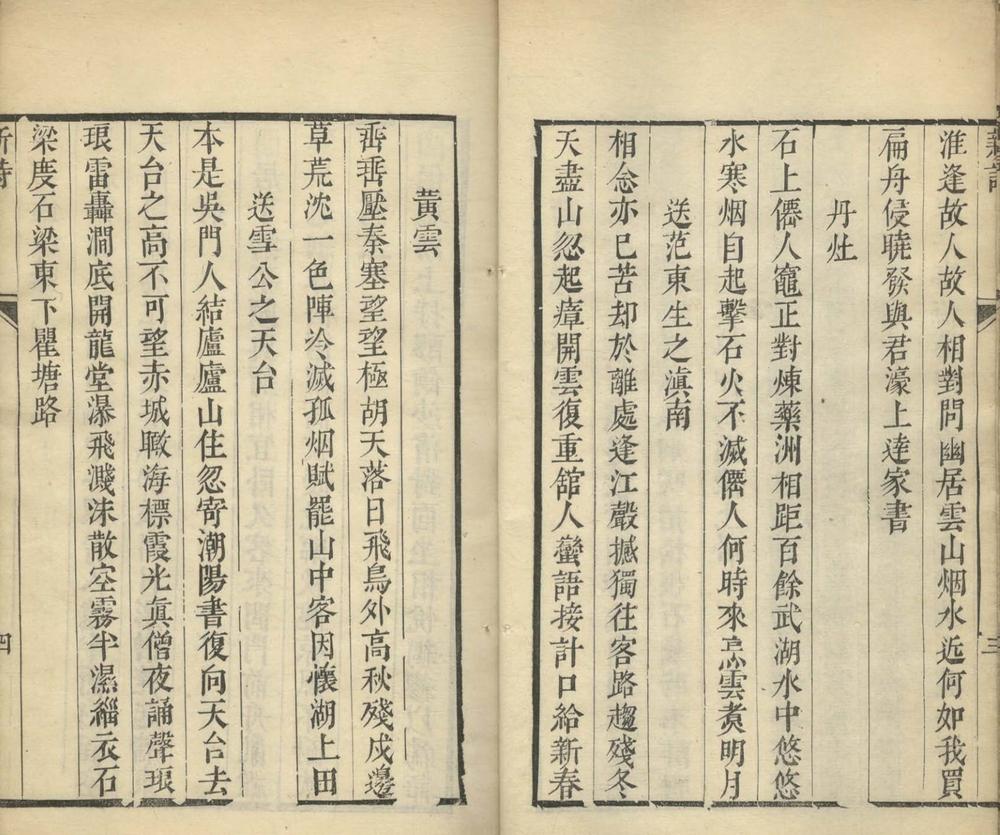 淮逢故人故人相對問幽居雲山烟水近何如我買
扁舟侵曉發與君濠上達家書
丹灶
石上僊人竈正對煉藥洲相距百餘武湖水中悠悠
水寒烟自起擊石火不滅僊人何時來烹雲煮明月
送范東生之滇南
相念亦已苦却於離處逢江聲撼獨往客路趨殘冬
天盡山忽起瘴開雲復重舘人蠻語接計口給新舂
三
黃雲
畨畨壓秦塞望望極胡天落日飛鳥外高秋殘戍邊
草荒沈一色陣冷滅孤烟賦罷山中客因懷湖上田
送雪公之天台
本是吳門人結廬廬山住忽寄潮陽書復向天台去
天台之高不可望赤城瞰海標霞光眞僧夜誦聲琅
琅雷轟澗底開龍堂瀑飛濺沫散空霧半濕緇衣石
梁度石梁東下瞿塘路
四